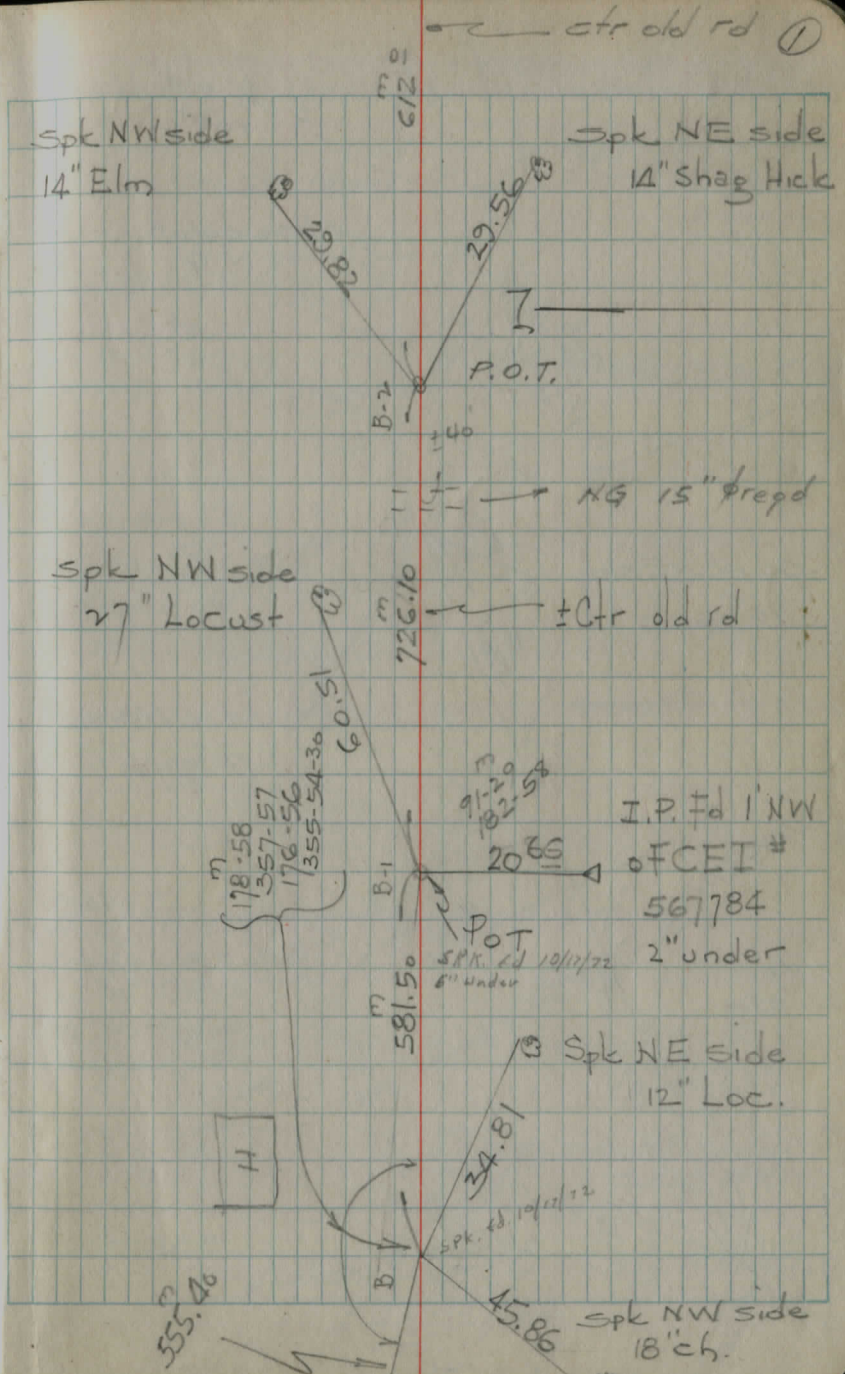 ctr old rd ①
612.01
m
Spk NW side
14" Elm
Spk NE side
14" Shag Hick
29.82
29.56
P.O.T.
B-2
±40
NG 15"
Spk NW side
27" Locust
m
726.10
±Ctr old rd
60.51
m
178-58
357-57
176-56
355-54-30
B-1
m
91-29
182-58
20.86
I.P. Fd 1' NW
of CEI #
567784
2" under
POT
SPK. fd 10/12/22
6" under
m
581.50
Spk NE side
12" Loc.
34.81
H
Spk. fd. 10/12/22
B
m
555.40
45.86
Spk NW side
18" ch.